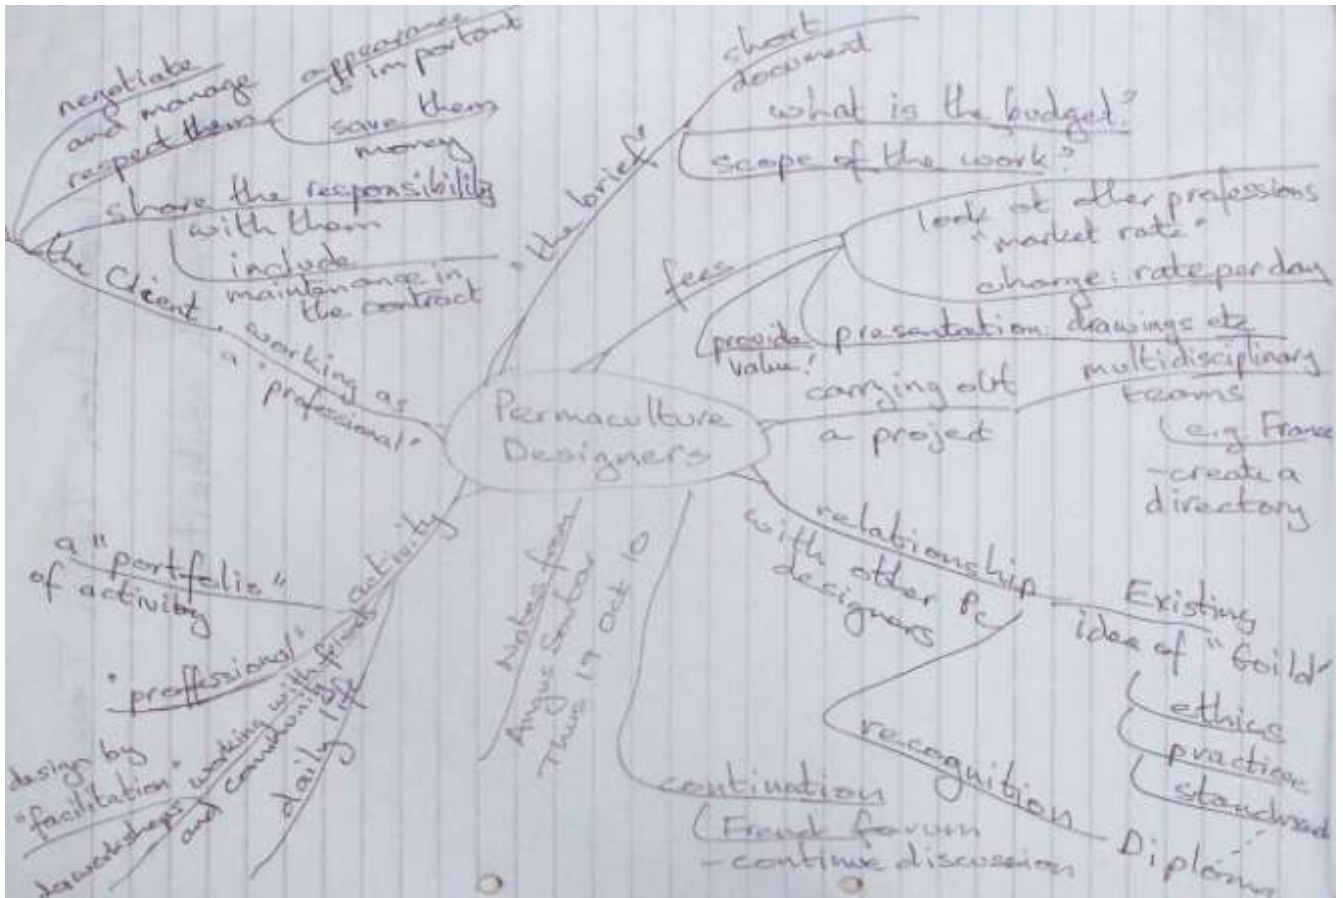 Permaculture
Designers
"the brief"
short
document
what is the budget?
scope of the work?
fees
look at other professions
"market rate"
charge: rate per day
presentation: drawings etc
provide
value!
carrying out
a project
multidisciplinary
teams
e.g France
- create a
directory
relationship
with other Pc
designers
Existing
idea of "Guild"
ethics
practice
standard
recognition
Diploma
continuation
French forum
- continue discussion
Notes from
Angus Soutar
Thus 19 Oct 10
activity
a "portfolio"
of activity
"proffessional"
working with friends
and community
design by
"facilitation"
workshops
daily
working as
a "professional"
the Client
negotiate
and manage
respect them
appearance
important
save them
money
share the responsibility
with them
include
maintenance in
the contract